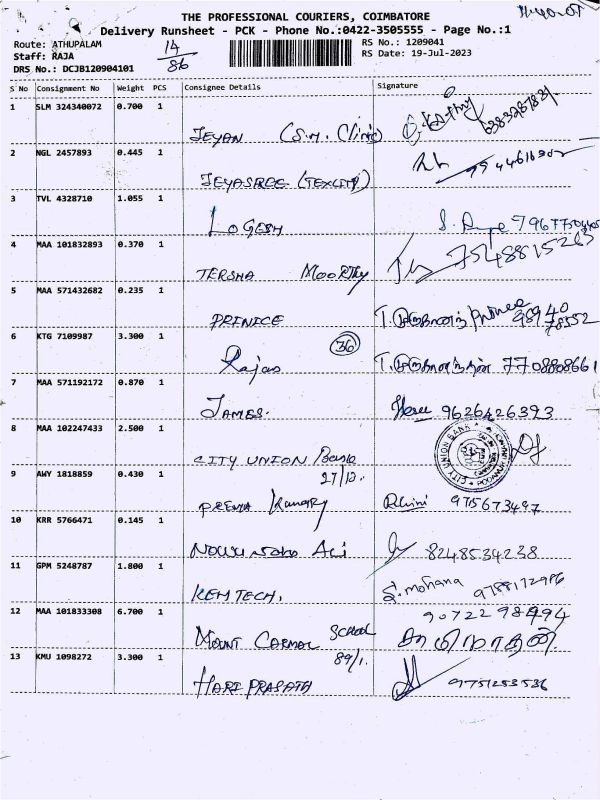 11-40-07
THE PROFESSIONAL COURIERS, COIMBATORE
Delivery Runsheet - PCK - Phone No.:0422-3505555 - Page No.:1
Route: ATHUPALAM 14 RS No.: 1209041
Staff: RAJA 86 RS Date: 19-Jul-2023
DRS No.: DCJB120904101
S No Consignment No Weight PCS Consignee Details Signature
1 SLM 324340072 0.700 1
JEYAN (S.M. Clinic) 6383287831
2 NGL 2457893 0.445 1
JEYASREE (TEXCITY)
3 TVL 4328710 1.055 1
LOGESH
4 MAA 101832893 0.370 1
TERSHA MOORTHY 7548815263
5 MAA 571432682 0.235 1
PRINICE 98940
78552
6 KTG 7109987 3.300 1
36
Rajas 7708808661
7 MAA 571192172 0.870 1
JAMES. 9626426393
8 MAA 102247433 2.500 1
CITY UNION Bank CITY UNION BANK
9 AWY 1818859 0.430 1 27/12.
PREMA Kumary 9715673497
10 KRR 5766471 0.145 1
Ali 8248534238
11 GPM 5248787 1.800 1
KEMTECH. mohana
12 MAA 101833308 6.700 1 9072298494
MOUNT CARMAL School
89/1.
13 KMU 1098272 3.300 1
HARI PRASATH 9751253536